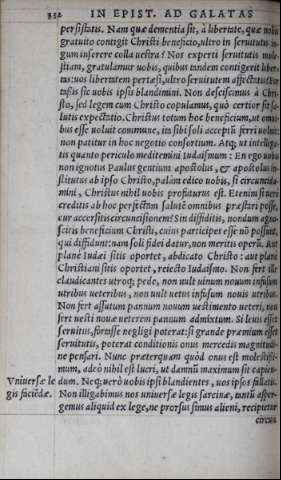 352 IN EPIST. AD GALATAS
persistatis. Nam quæ dementia sit, à libertate, quæ nobis
gratuito contigit Christi beneficio, ultro in seruitutis iu-
gum inserere colla uestra? Nos experti seruitutis mole-
stiam, gratulamur nobis, quibus tandem contigerit liber-
tas: uos libertatem pertæsi, ultro seruitutem
sic uobis ipsis blandimini. Non desciscimus à Chri-
sto, sed legem cum Christo copulamus, quò certior sit sa-
lutis expectatio. Christus totum hoc beneficium, ut omni-
bus esse uoluit commune, ita sibi soli acceptũ ferri uoluit:
non patitur in hoc negotio consortium. Atq; ut intelliga-
tis quanto periculo meditemini Iudaismum: En ego uobis
non ignotus Paulus gentium apostolus, & apostolus in-
stitutus ab ipso Christo, palàm edico uobis, si circuncida-
mini, Christus nihil uobis profuturus est. Etenim si ueri
creditis ab hoc perfectam salutẽ omnibus præstari posse,
cur accersitis circuncisionem? Sin diffiditis, nondum agno-
scitis beneficium Christi, cuius participes esse nõ possunt,
qui diffidunt: nam soli fidei datur, non meritis operũ. Aut
planè Iudæi sitis oportet, abdicato Christo: aut planè
Christiani sitis oportet, reiecto Iudaismo. Non fert ille
claudicantes utroq; pede, non uult uinum nouum infusum
utribus ueteribus, non uult uetus infusum nouis utribus.
Non fert assutum pannum nouum uestimento ueteri, non
fert uesti nouæ ueterem pannum admixtum. Si leuis esset
seruitus, fortasse negligi poterat: si grande præmium esset
seruitutis, poterat conditionis onus mercedis magnitudi-
ne pensari. Nunc præterquam quòd onus est molestissi-
mum, adeò nihil est lucri, ut damnũ maximum sit capien-
Vniuersæ le dum. Neq; uerò uobis ipsi blandientes, uos ipsos fallatis.
gis faciẽdæ. Non illigabimus nos uniuersæ legis sarcinæ, tantũ asper-
gemus aliquid ex lege, ne prorsus simus alieni, recipietur
circun